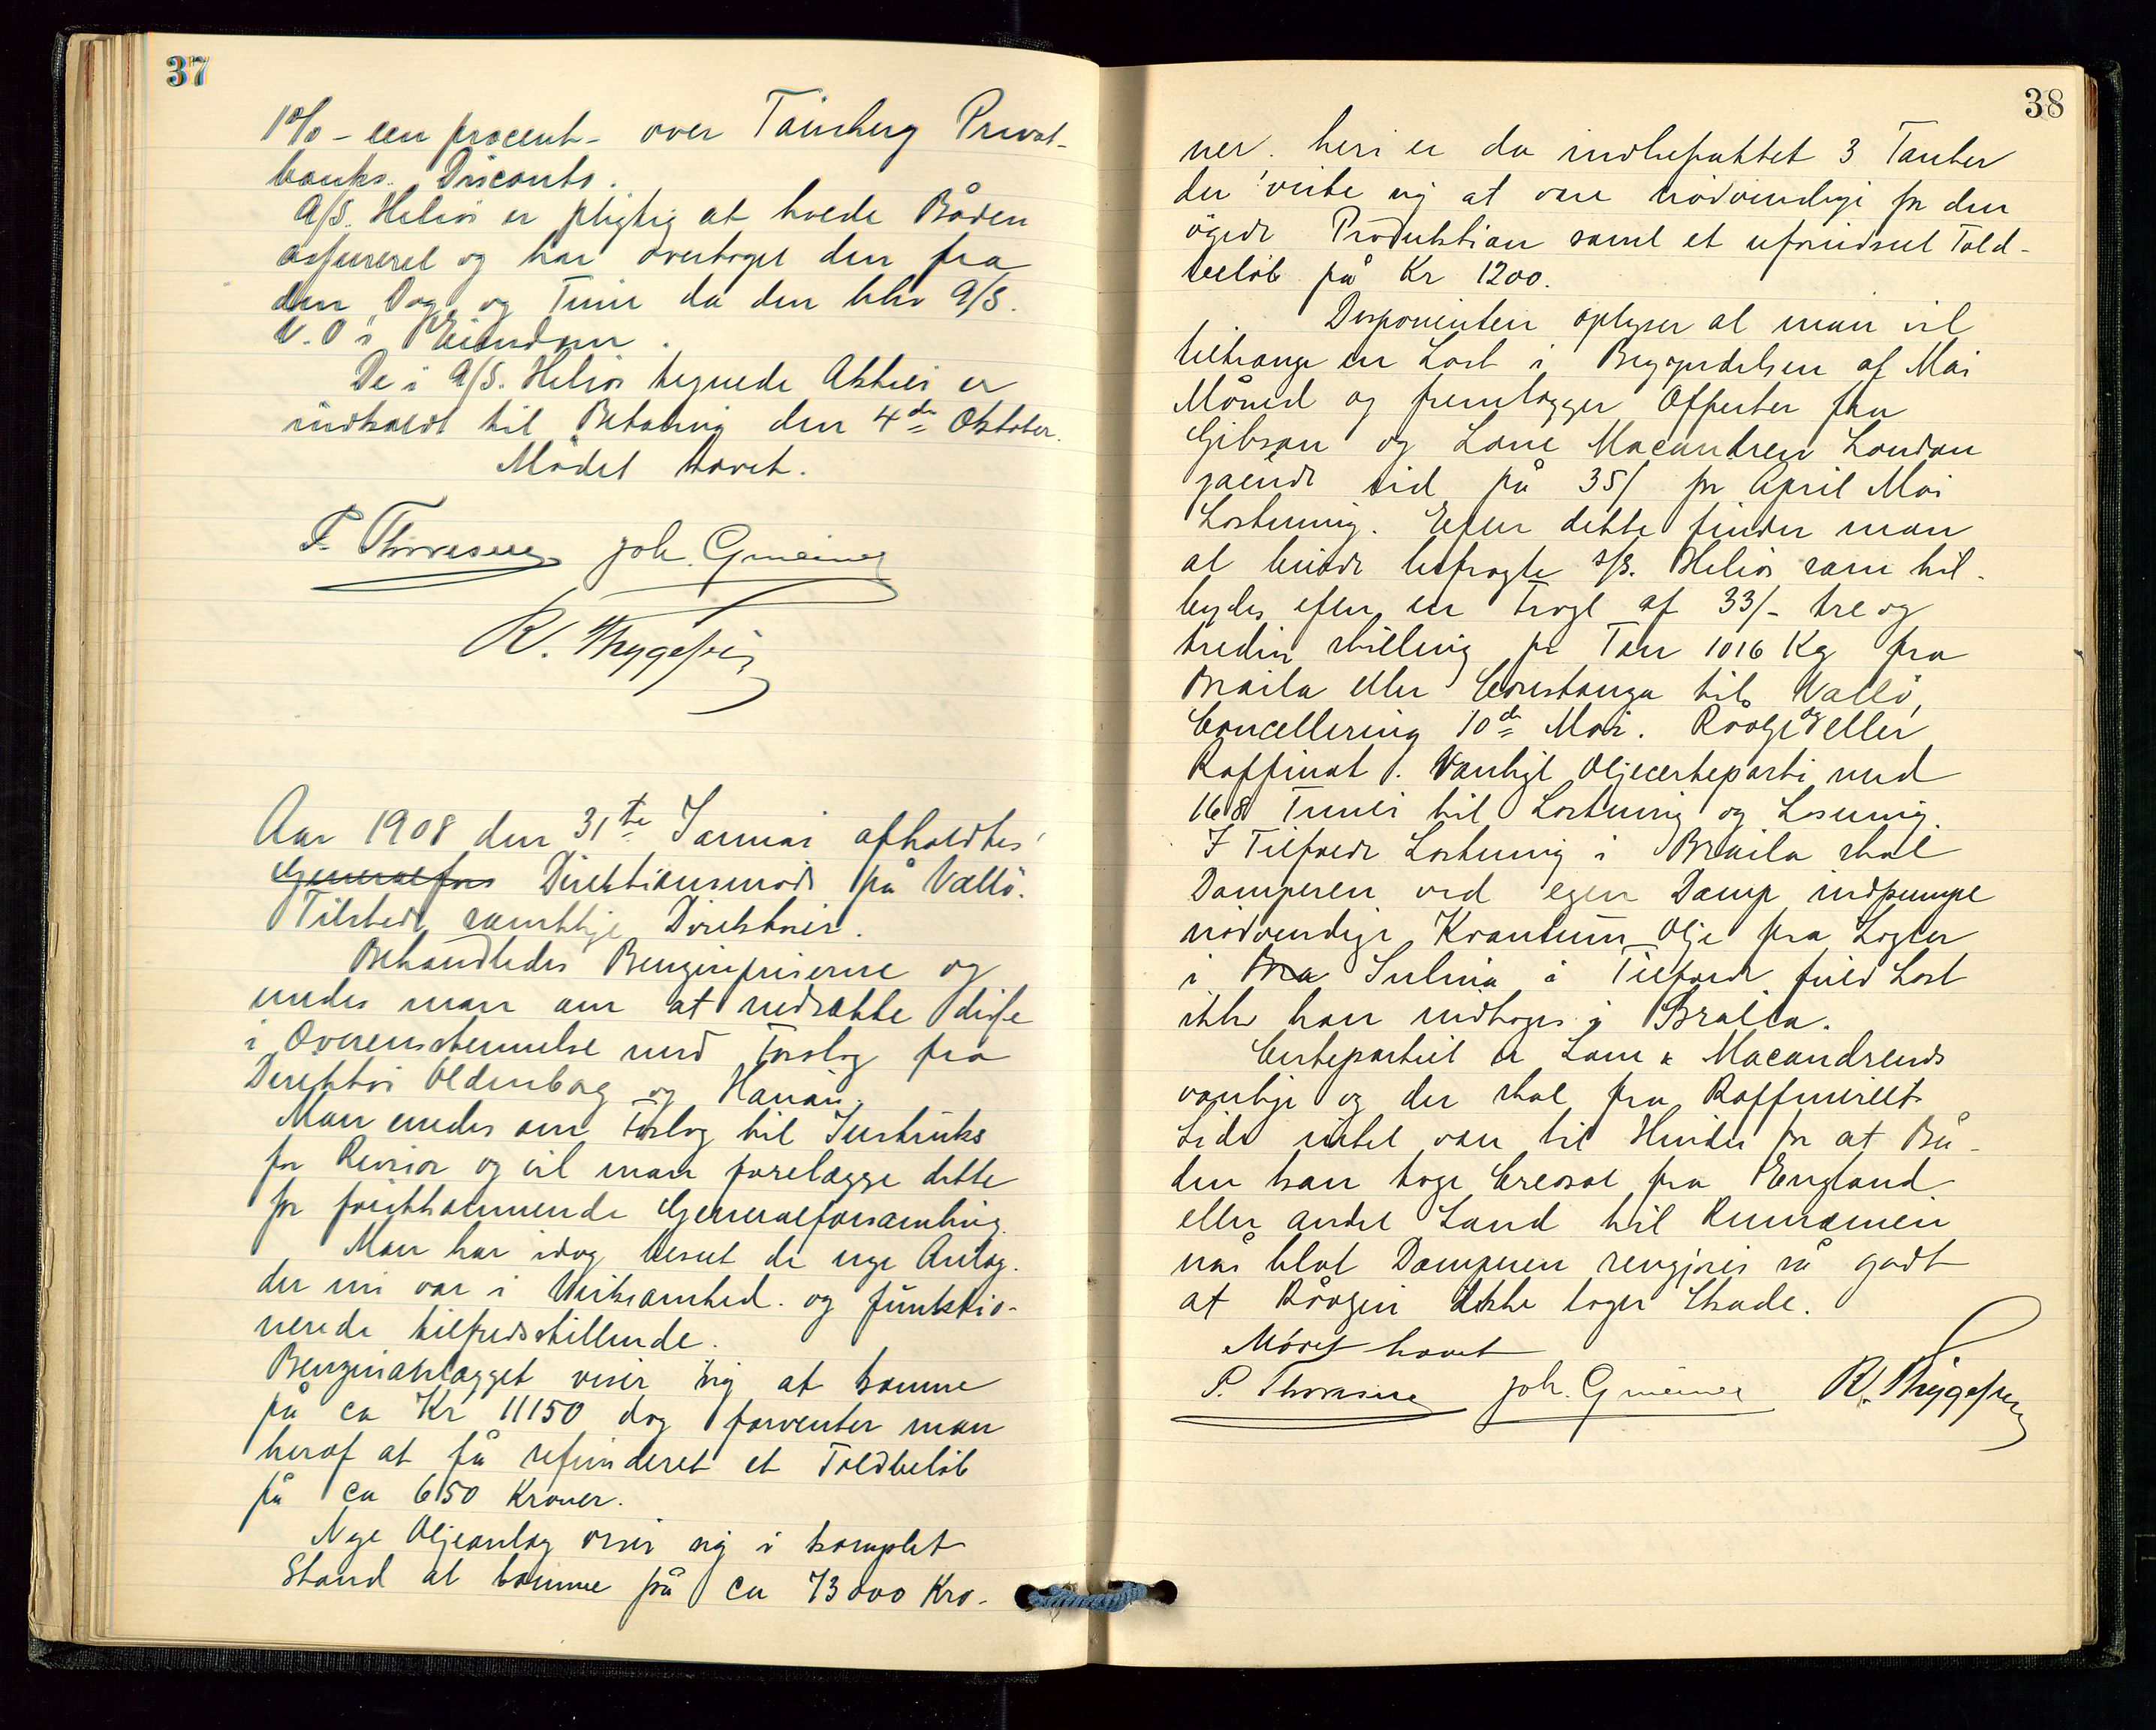 37
1% - een procent - over Tönsberg Privat-
banks Disconto.
A/S. Helios er pligtig at holde Båden
assureret og har overtaget den fra
den Dag og Time da den blev A/S.
V. O's Eiendom.
De i A/S. Helios tegnede Aktier er
indkaldt til Betaling den 4de Oktober.
Mödet hævet.
P. Thoresen Joh. Grueiner
R. Thygesen
Aar 1908 den 31te Januar afholdtes
Generalfors Direktionsmöde på Vallö.
Tilstede samtlige Direktører.
Behandledes Benzinpriserne og
enedes man om at nedsætte disse
i Overensstemmelse med Forslag fra
Direktør Oldenborg og Hanau.
Man enedes om Forslag til Instruks
for Revisor og vil man forelægge dette
for førstkommende Generalforsamling.
Man har idag beseet de nye Anlæg.
der nu var i Virksomhed og funktio-
nerede tilfredsstillende.
Benzinanlægget viser sig at komme
på ca Kr 11150 dog forventer man
heraf at få refunderet et Toldbelöb
på ca 650 Kroner.
Nye Oljeanlæg viser sig i komplet
Stand at komme på ca 73000 Kro-
38
ner. heri er da indbefattet 3 Tanker
der viste sig at være nödvendige for den
ögede Produktion samt et uforudseet Told-
belöb på Kr 1200.
Disponenten oplyser at man vil
tiltrænge en Last i Begyndelsen af Mai
Måned og fremlægger Offerter fra
Gibson og Lane Macandrew London
gaende ud på 35/ for April Mai
Lastning. Efter dette finder man
at burde befragte S/S. Helios som til-
bydes efter en Fragt af 33/- tre og
tredive shilling pr Ton 1016 Kg fra
Braila eller Constanza til Vallö,
Cancellering 10de Mai. Råolje og eller
Raffinat. Vanligt Oljecerteparti med
168 Timer til Lastning og Losning.
I Tilfælde Lastning i Braila skal
Damperen ved egen Damp indpumpe
nödvendige Kvantum Olje fra Lægter
i Bra Sulina i Tilfælde fuld Last
ikke kan indtages i Braila.
Certepartiet er Lane & Macandrews
vanlige og der skal fra Raffineriets
Side intet være til Hinder for at Bå-
den kan tage Creosot fra England
eller andet Land til Rumænien
når blot Damperen rengjöres så godt
at Råoljen ikke tager Skade.
Mödet hævet
P. Thoresen Joh. Grueiner R. Thygesen